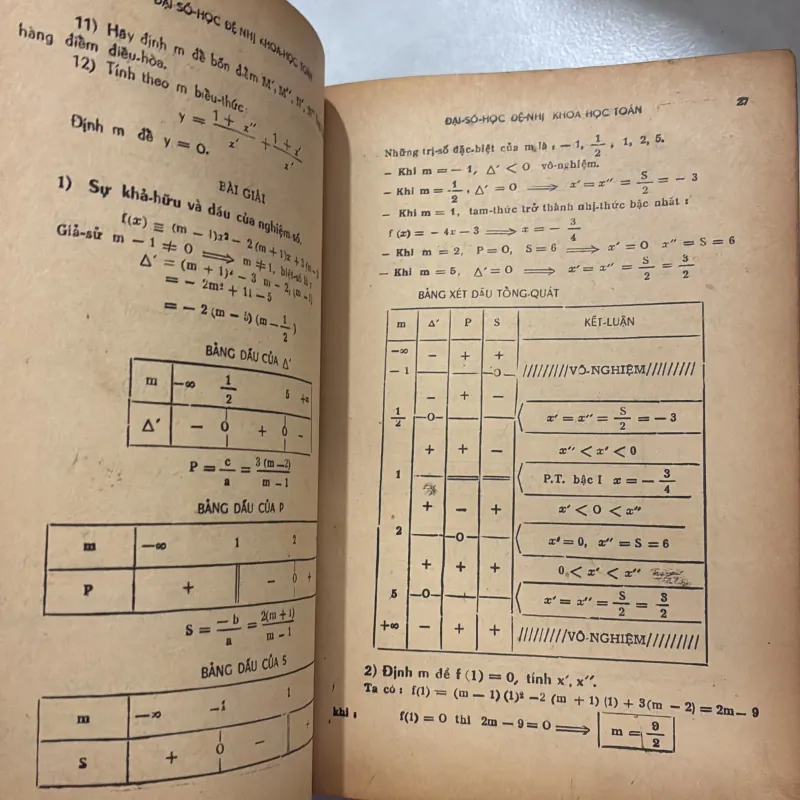 ĐẠI-SỐ-HỌC ĐỆ NHỊ KHOA-HỌC TOÁN
11) Hãy định m để bốn điểm M', M'', N', N''
hàng điểm điều-hòa.
12) Tính theo m biểu-thức:
y = (1 + x'')/x' + (1 + x')/x'
Định m để y = 0.
BÀI GIẢI
1) Sự khả-hữu và dấu của nghiệm số.
f(x) ≡ (m — 1)x² — 2(m + 1)x + 3(m — 2
Giả-sử m — 1 ≠ 0 ⟹ m ≠ 1, biệt-số là :
Δ' = (m + 1)² — 3(m — 2)(m — 1)
= — 2m² + 11 — 5
= — 2(m — 5)(m — 1/2)
BẢNG DẤU CỦA Δ'
m —∞ 1/2 5 +∞
Δ' — 0 + 0 —
P = c/a = 3(m—2)/(m—1)
BẢNG DẤU CỦA P
m —∞ 1 2
P + || — 0 +
S = —b/a = 2(m + 1)/(m — 1)
BẢNG DẤU CỦA S
m —∞ —1 1
S + 0 —
ĐẠI-SỐ-HỌC ĐỆ-NHỊ KHOA HỌC TOÁN 27
Những trị-số đặc-biệt của m là : — 1, 1/2, 1, 2, 5.
— Khi m = — 1, Δ' < 0 vô-nghiệm.
— Khi m = 1/2, Δ' = 0 ⟹ x' = x'' = S/2 = — 3
— Khi m = 1, tam-thức trở thành nhị-thức bậc nhất :
f (x) = — 4x — 3 ⟹ x = — 3/4
— Khi m = 2, P = 0, S = 6 ⟹ x' = 0 x'' = S = 6
— Khi m = 5, Δ' = 0 ⟹ x' = x'' = S/2 = 3/2
BẢNG XÉT DẤU TỔNG-QUÁT
m Δ' P S KẾT-LUẬN
—∞ — + +
— 1 0 /////////VÔ-NGHIỆM/////////
— + —
1/2 0 x' = x'' = S/2 = — 3
+ + — x'' < x' < 0
1 P.T. bậc I x = — 3/4
+ — + x' < 0 < x''
2 0 x' = 0, x'' = S = 6
+ + + 0 < x' < x''
5 0 x' = x'' = S/2 = 3/2
+∞ — + + /////////VÔ-NGHIỆM/////////
2) Định m để f (1) = 0, tính x', x''.
Ta có : f(1) = (m — 1) (1)² —2 (m + 1) (1) + 3(m — 2) = 2m — 9
khi : f(1) = 0 thì 2m — 9 = 0 ⟹ m = 9/2